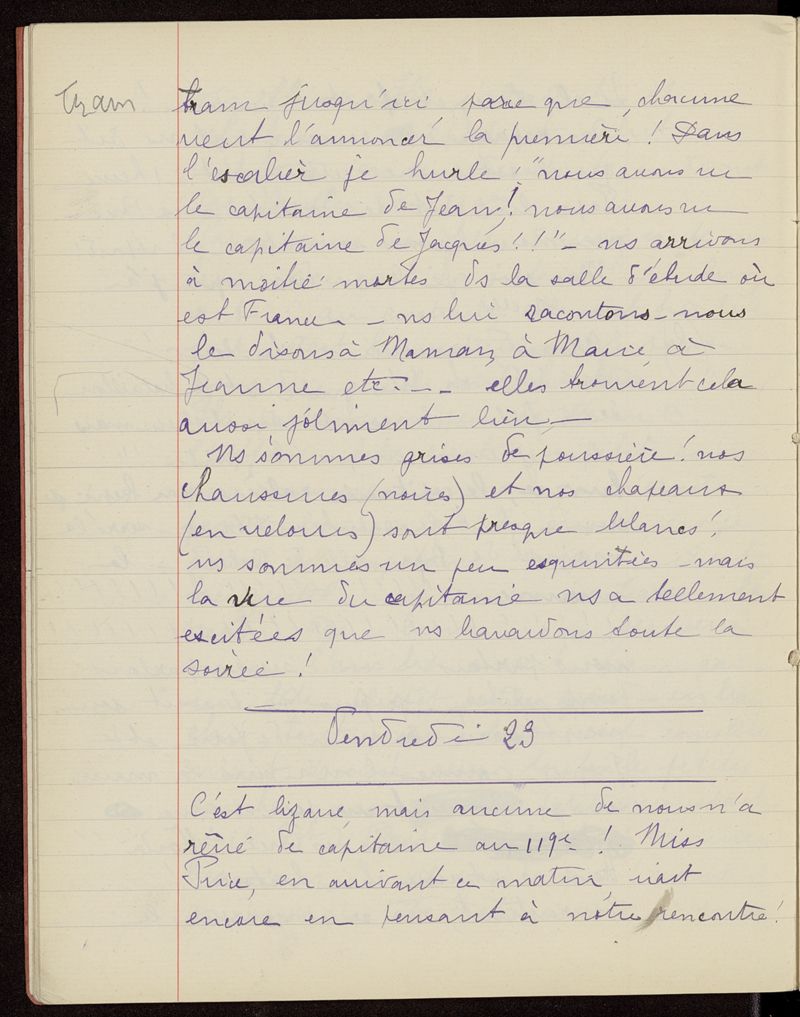 Tram
tram jusqu'ici, parce que, chacune
veut l'annoncer la première ! Dans
l'escalier je hurle : "nous avons vu
le capitaine de Jean ! nous avons vu
le capitaine de Jacques ! !" - ns arrivons
à moitié mortes ds la salle d'étude où
est France - ns lui racontons - nous
le disons à Maman, à Marie, à
Jeanne etc. - - elles trouvent cela
aussi joliment bien, -
Ns sommes grises de poussière ! nos
chaussures (noires) et nos chapeaux
(en velours) sont presque blancs !
ns sommes un peu esquintées - mais
la vue du capitaine ns a tellement
excitées que ns bavardons toute la
soirée !
Vendredi 23
C'est bizarre, mais aucune de nous n'a
rêvé de capitaine au 119e ! Miss
Price, en arrivant ce matin, riait
encore en pensant à notre rencontre !